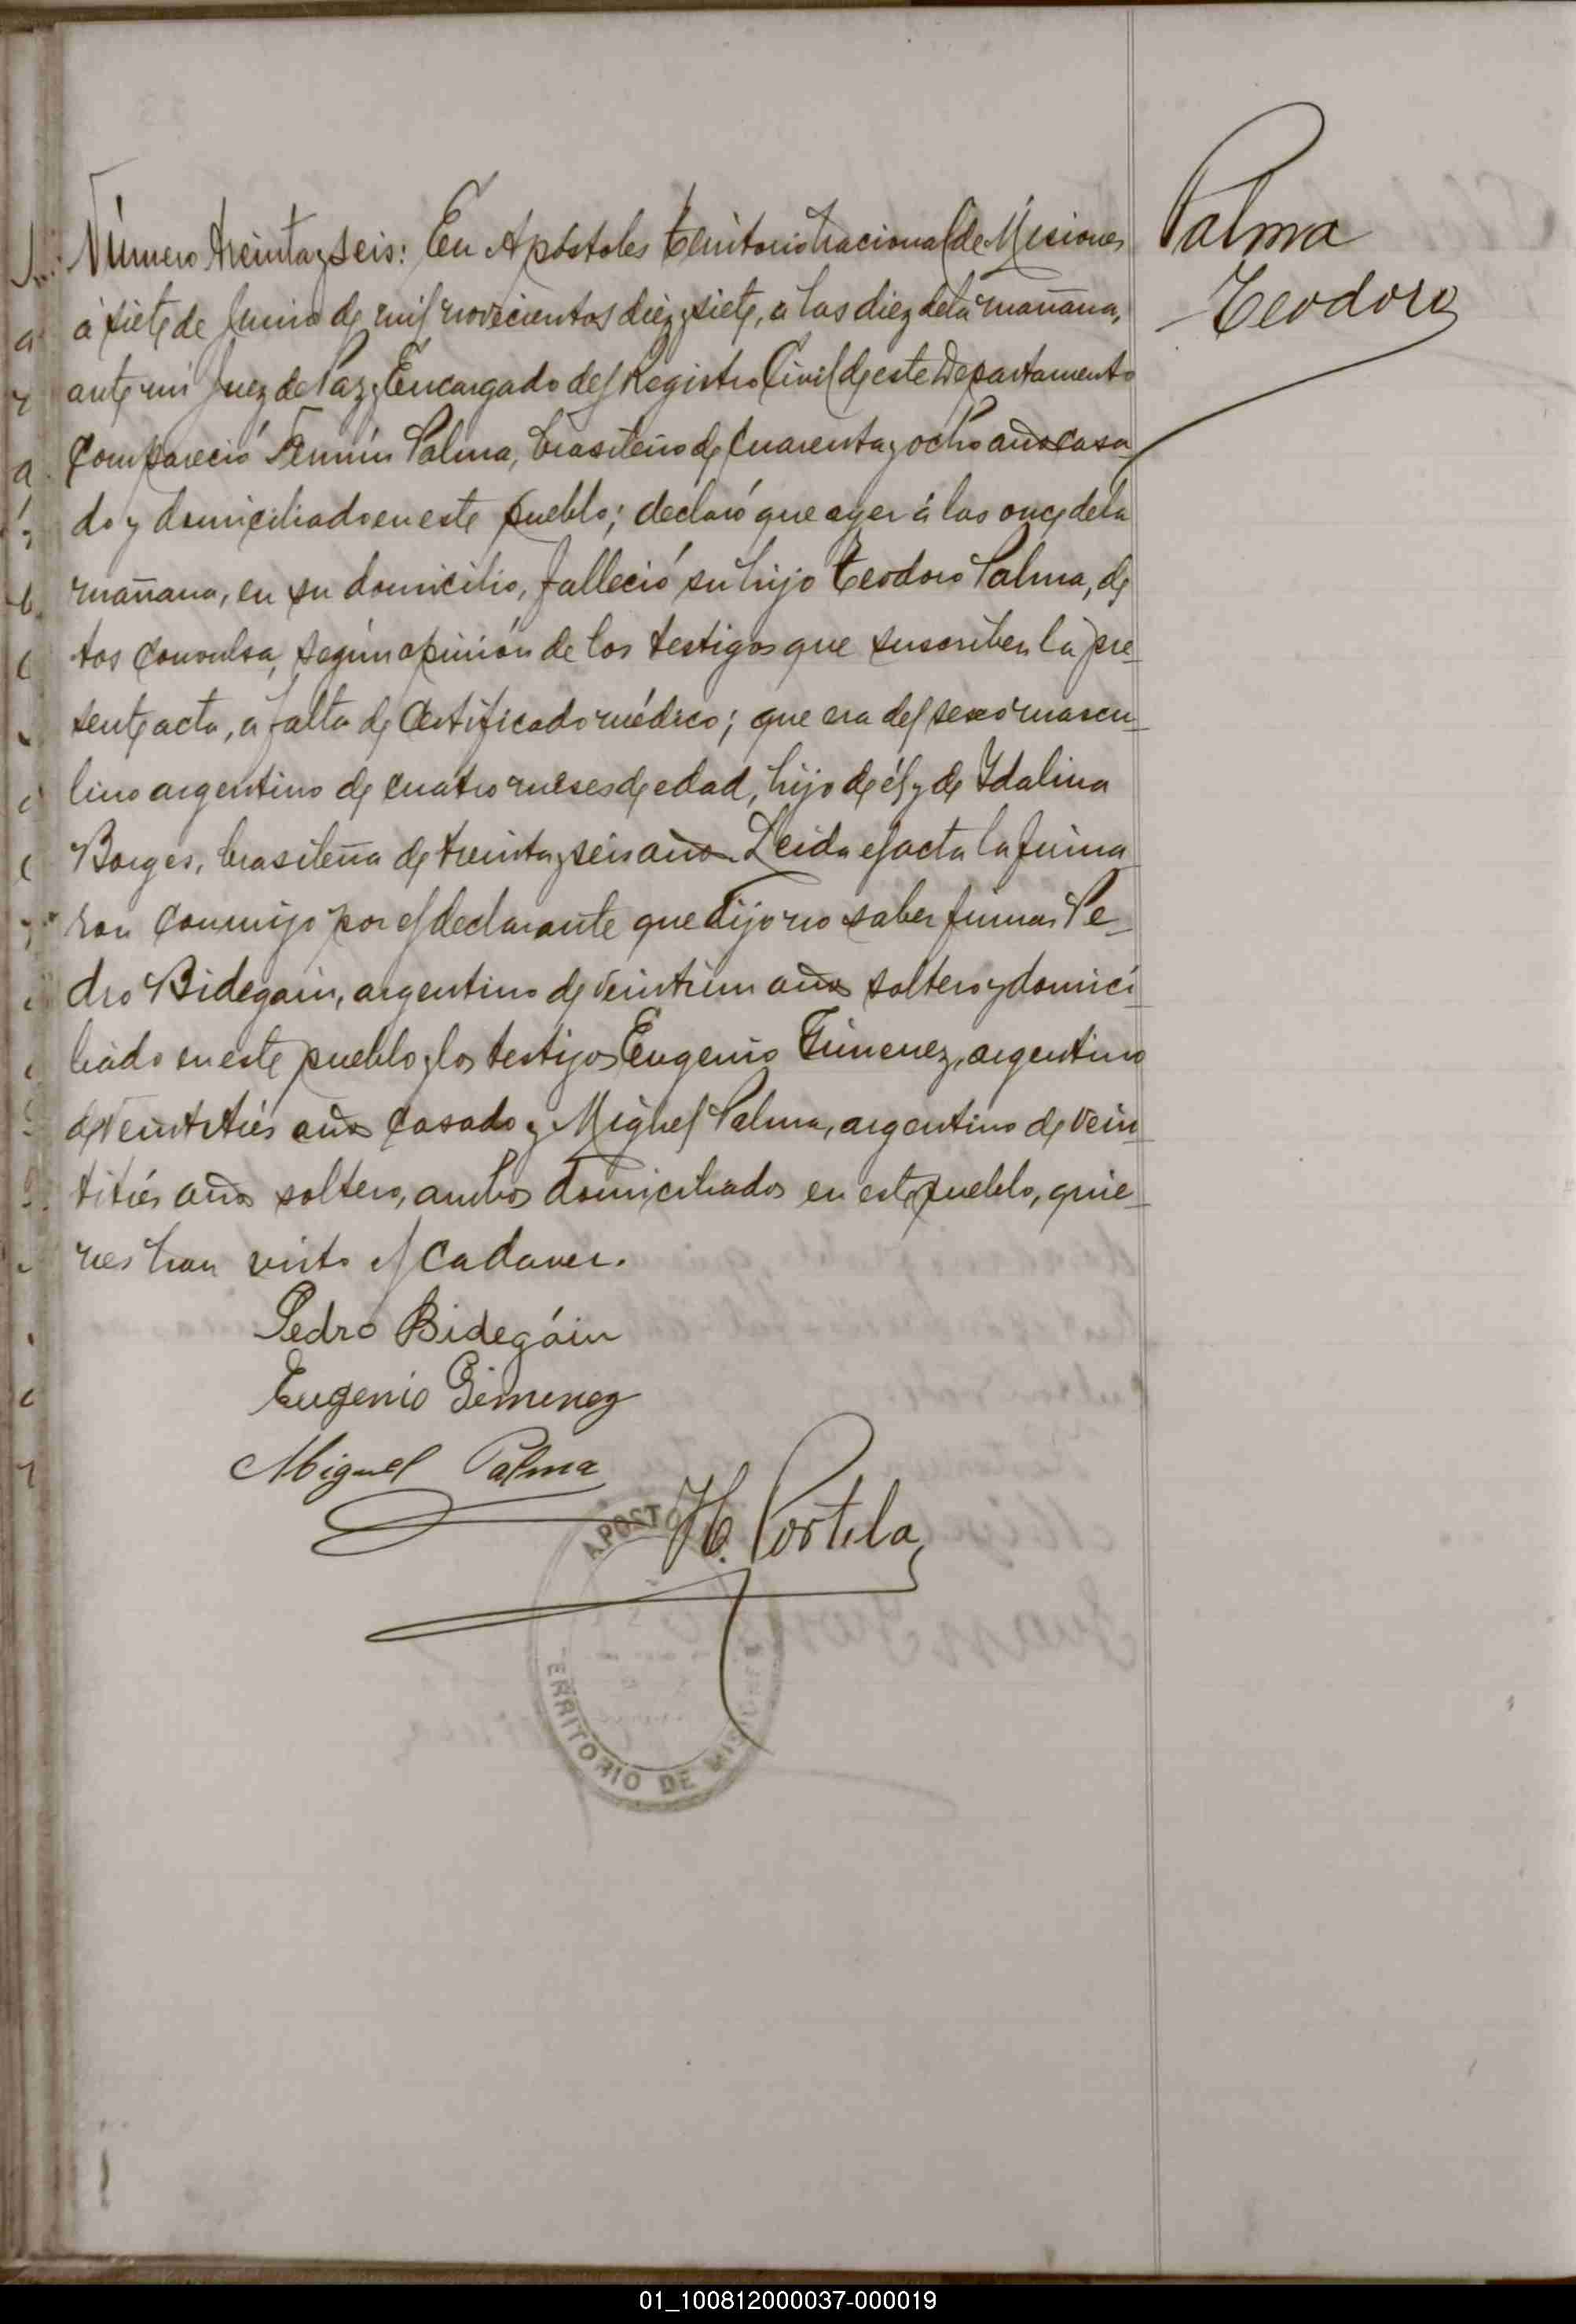 Palma
Teodoro
Número treinta y seis: En Apóstoles territorio nacional de Misiones
á siete de Junio de mil novecientos diez y siete, a las diez de la mañana,
ante mi Juez de Paz y Encargado del Registro Civil de este Departamento
Compareció Fermín Palma, brasileño de cuarenta y ocho años casa
do y domiciliado en este pueblo; declaró que ayer á las once de la
mañana, en su domicilio, falleció su hijo Teodoro Palma, de
tos convulsa, según opinión de los testigos que suscriben la pre-
sente acta, a falta de Certificado médico; que era del sexo mascu-
lino argentino de cuatro meses de edad, hijo de él y de Idalina
Borges, brasileña de treinta y seis años. Leida el acta la firma
ron conmigo por el declarante que dijo no saber firmar Pe-
dro Bidegain, argentino de veintiun años soltero y domici
liado en este pueblo y los testigos Eugenio Gimenez, argentino
de veintitrés años casado y Miguel Palma, argentino de vein
titrés años soltero, ambos domiciliados en este pueblo, quie-
nes han visto el cadaver.
Pedro Bidegáin
Eugenio Gimenez
Miguel Palma
H. Portela
APOSTO
ERRITORIO DE MISIONES
01_100812000037-000019